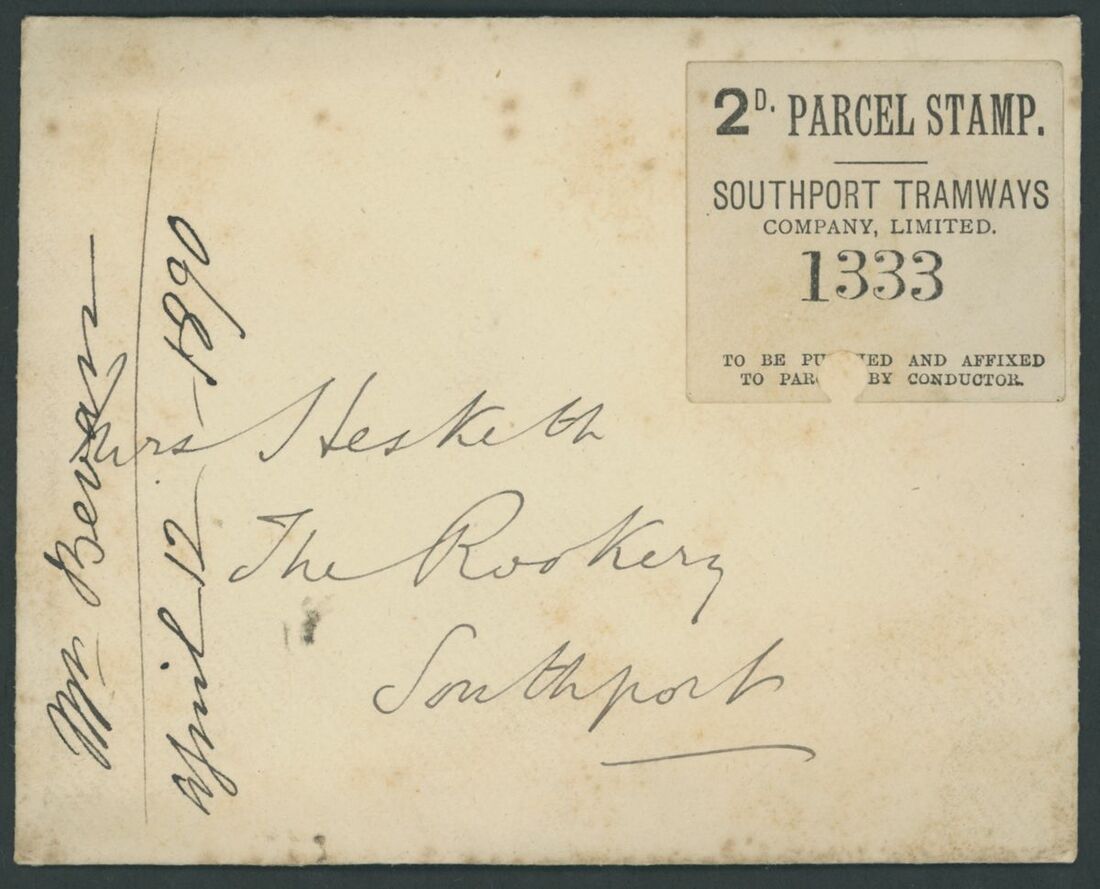 2D. PARCEL STAMP.
SOUTHPORT TRAMWAYS
COMPANY, LIMITED.
1333
TO BE PU IED AND AFFIXED
TO PAR BY CONDUCTOR.
Mrs Hesketh
The Rookery
Southport
Mr Bevan
April 12 - 1890